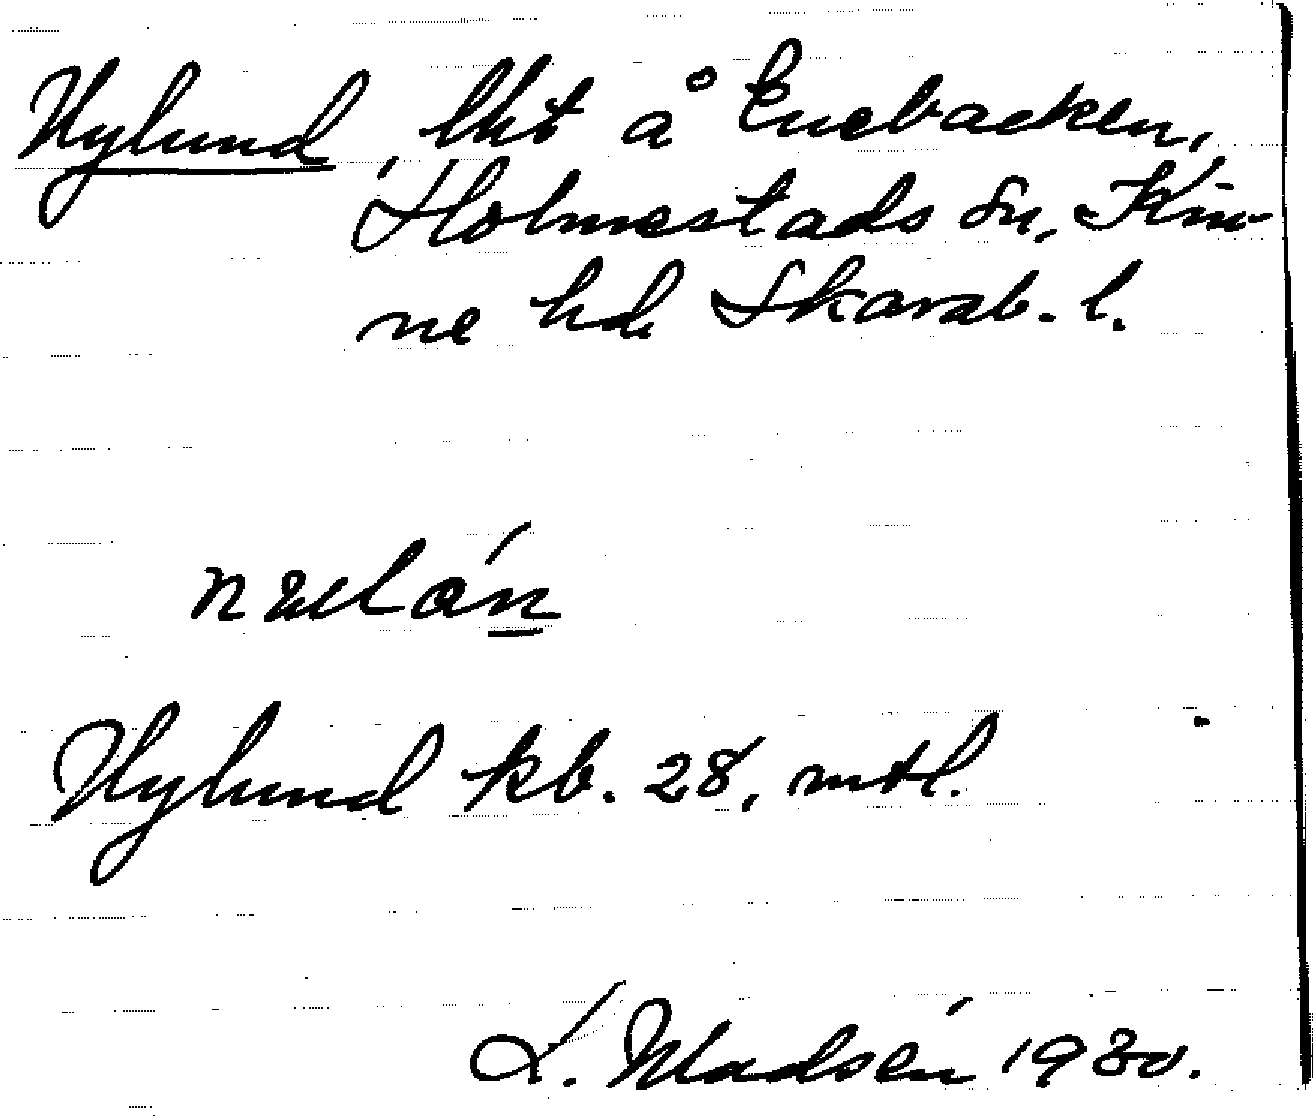 Nylund, lht å Enebacken,
Holmestads sn, Kin-
ne hd, Skarab. l.
Nylund kb. 28, mtl.
L. Madsén 1930.